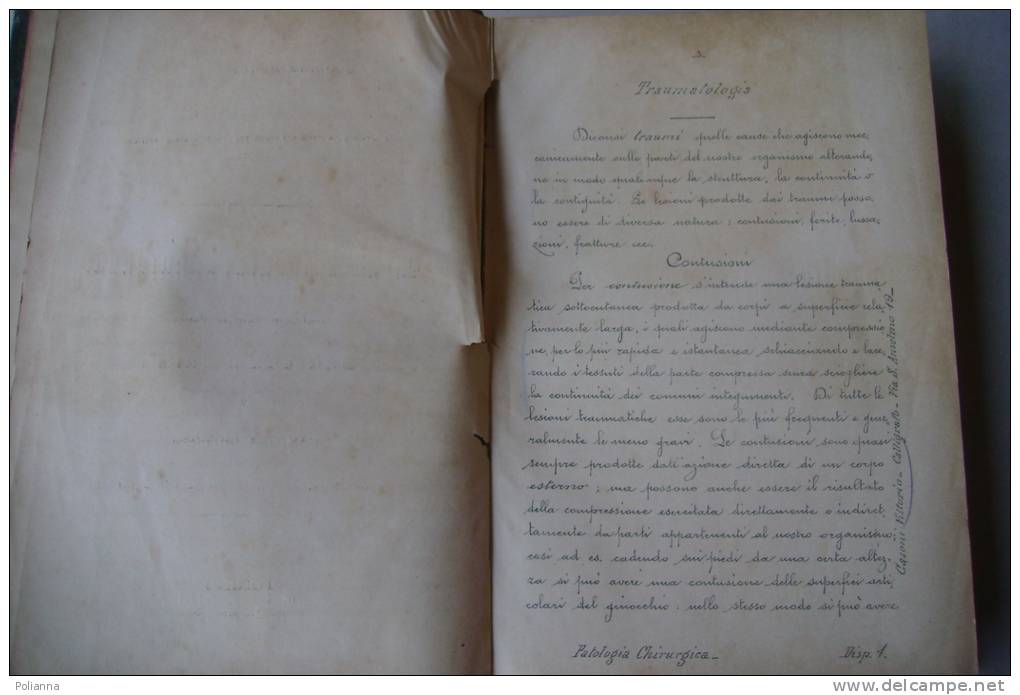 Traumatologia
Diconsi traumi quelle cause che agiscono mec-
canicamente sulle parti del nostro organismo alterando-
no in modo qualunque la struttura, la continuità o
la contiguità. Le lesioni prodotte dai traumi posso-
no essere di diversa natura: contusioni, ferite, lussa-
zioni, fratture ecc.
Contusioni
Per contusione s'intende una lesione trauma-
tica sottocutanea prodotta da corpi a superficie rela-
tivamente larga, i quali agiscono mediante compressio-
ne, per lo più rapida e istantanea schiacciando e lace-
rando i tessuti della parte compressa senza sciogliere
la continuità dei comuni integumenti. Di tutte le
lesioni traumatiche esse sono le più frequenti e gene-
ralmente le meno gravi. Le contusioni sono quasi
sempre prodotte dall'azione diretta di un corpo
esterno; ma possono anche essere il risultato
della compressione esercitata direttamente o indiret-
tamente da parti appartenenti al nostro organismo
così ad es. cadendo sui piedi da una certa altez-
za si può avere una contusione delle superfici arti-
colari del ginocchio: nello stesso modo si può avere
Casoni Vittorio - Calligrafo - Via S. Anselmo 19_
Patologia Chirurgica_ Disp. 1.
Polianna
www.delcampe.net